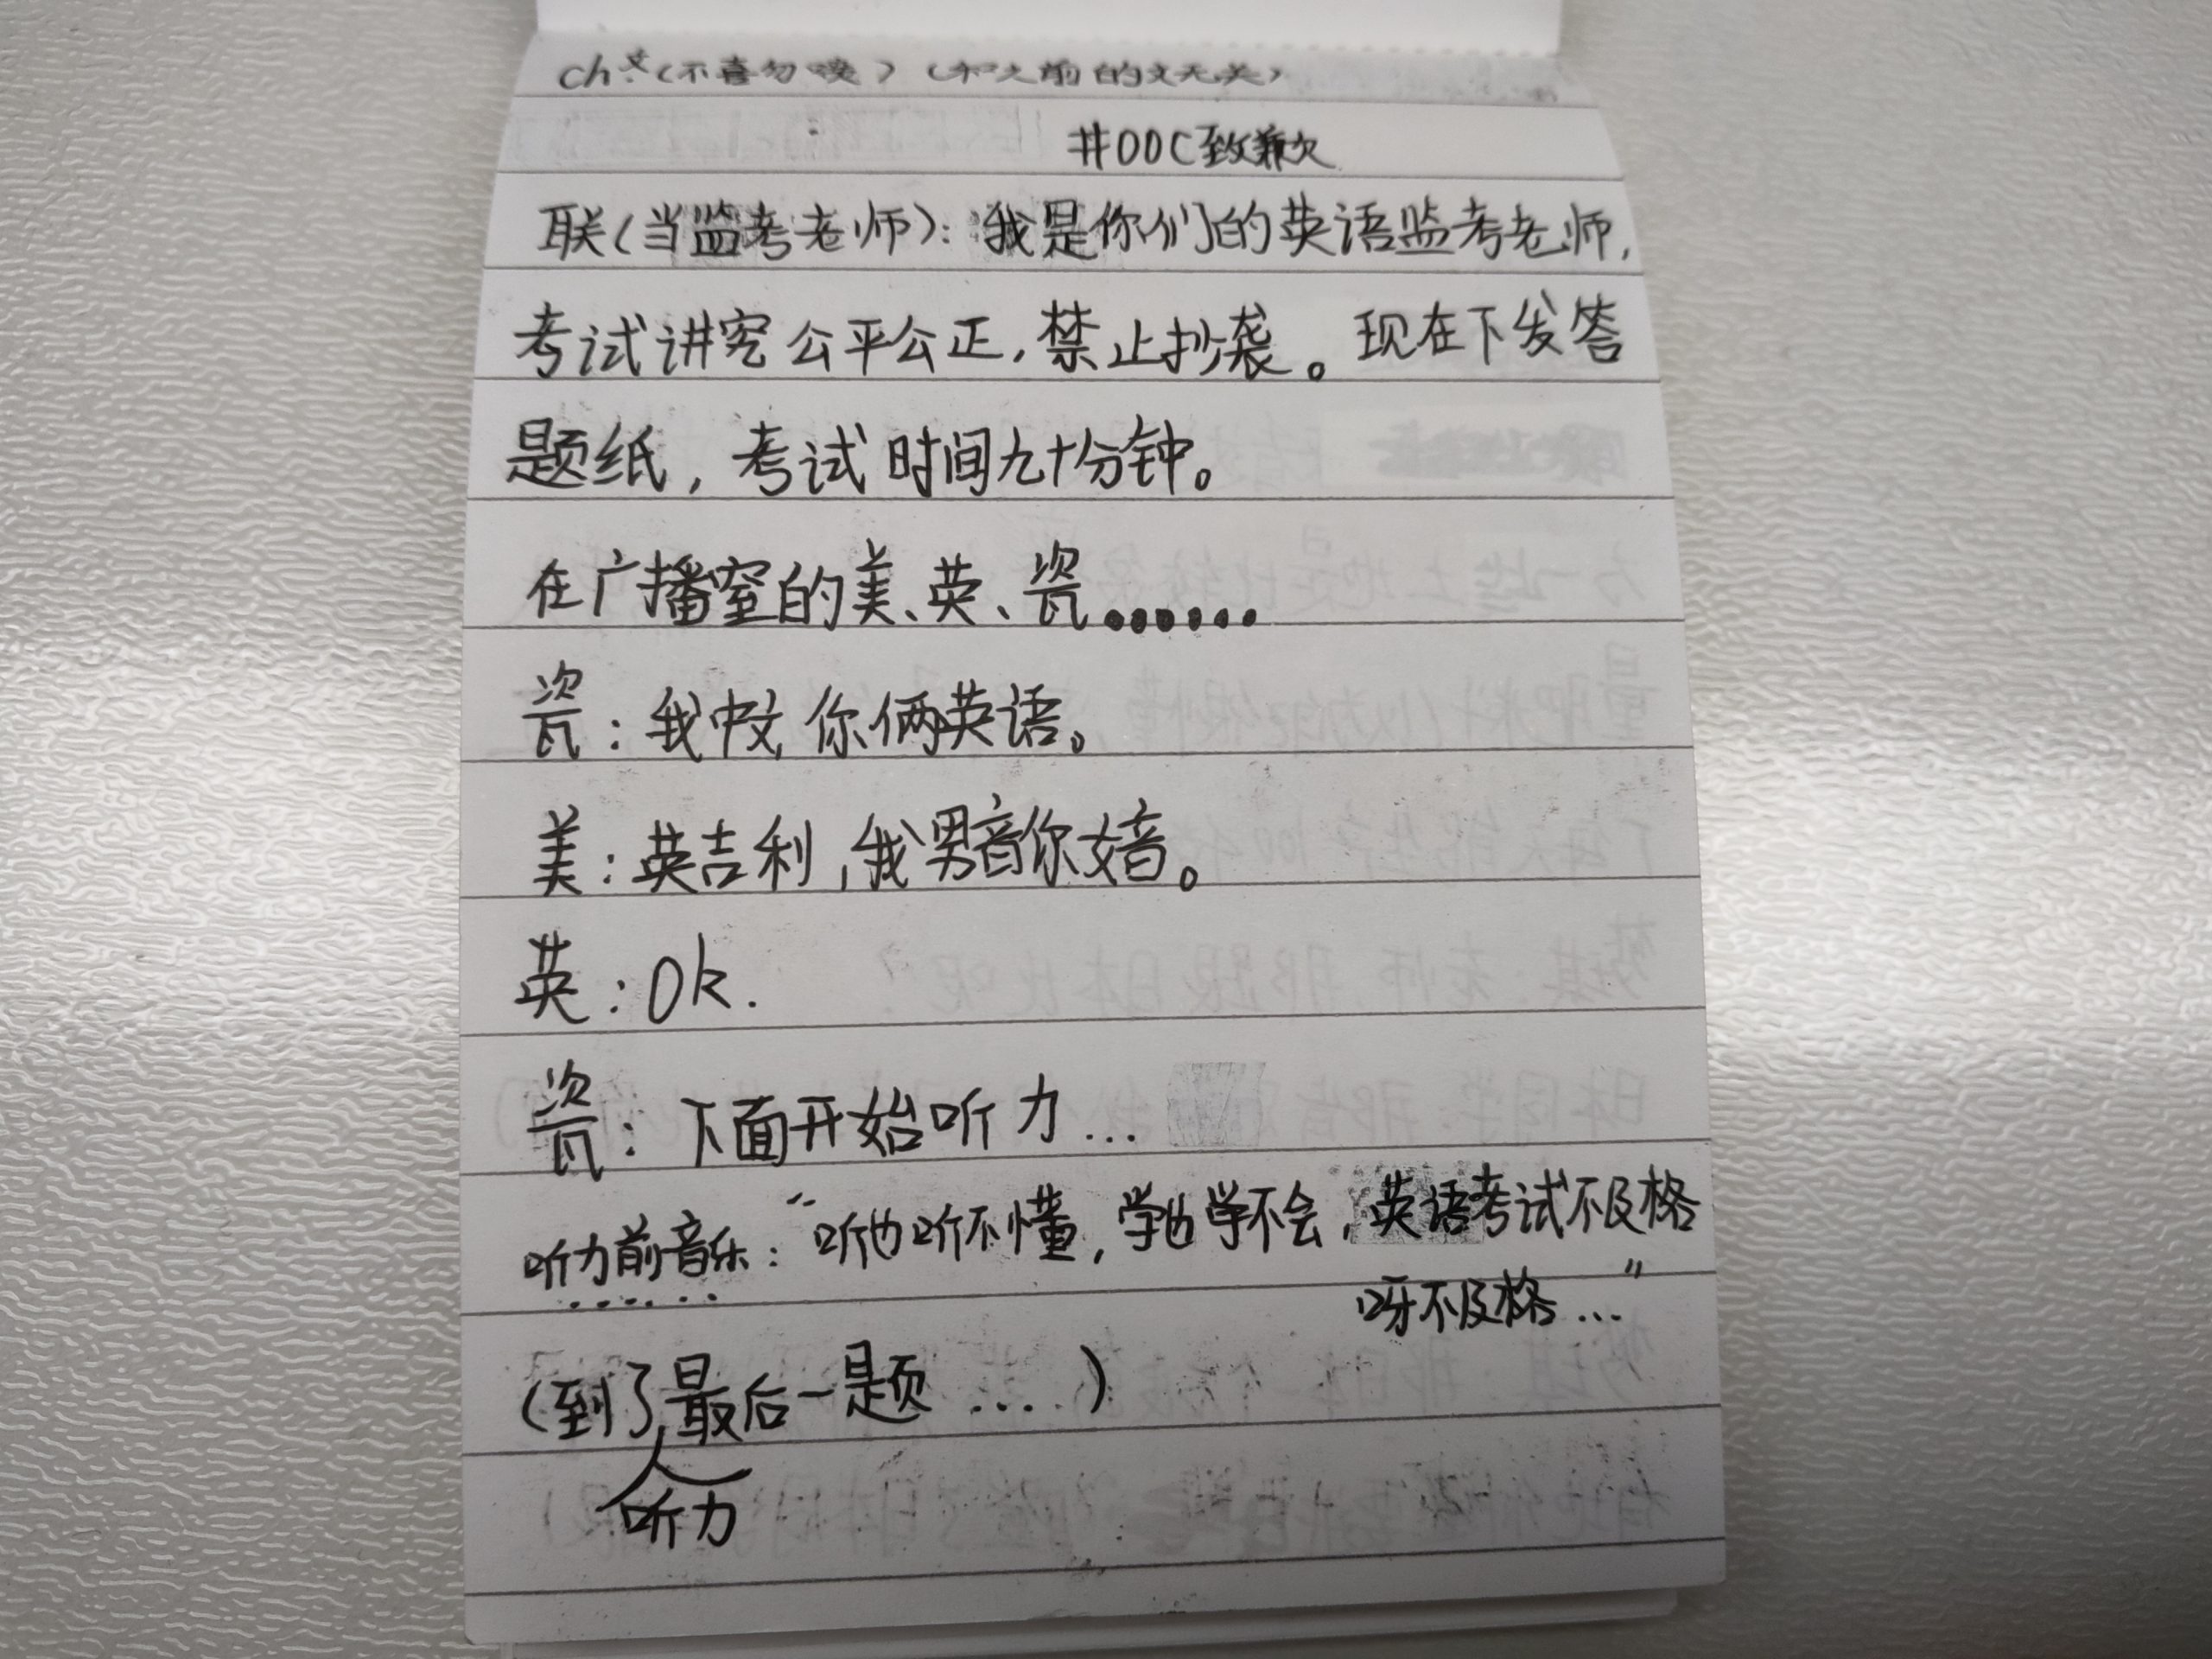 ch文(不喜勿喷)(和之前的文无关)
#OOC致歉
联(当监考老师):我是你们的英语监考老师,
考试讲究公平公正,禁止抄袭。现在下发答
题纸,考试时间九十分钟。
在广播室的美、英、瓷……
瓷:我中文,你俩英语。
美:英吉利,我男音你女音。
英:Ok.
瓷:下面开始听力...
听力前音乐:“听也听不懂,学也学不会,英语考试不及格
呀不及格...”
(到了最后一题....)
听力